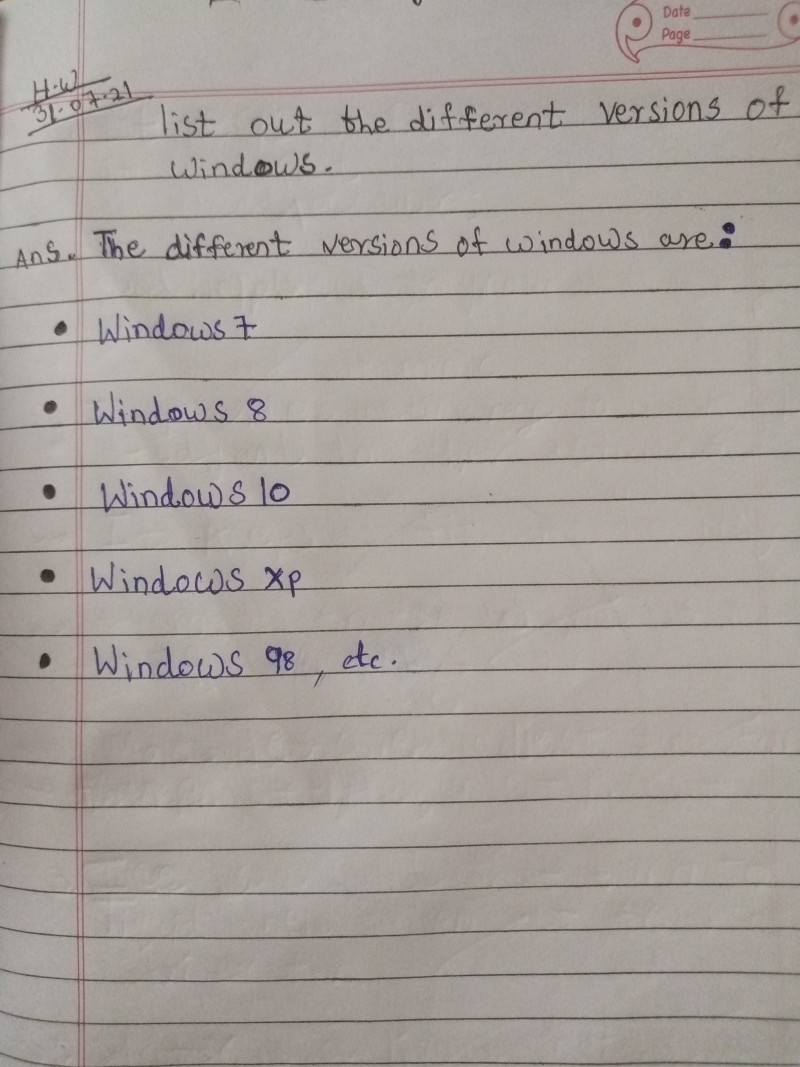 Date
Page
H.W
31.07.21
list out the different versions of
windows.
Ans. The different versions of windows are:
• Windows 7
• Windows 8
• Windows 10
• Windows xp
• Windows 98, etc.